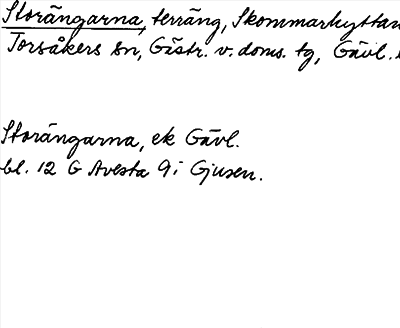 Storängarna, terräng, Skommarhyttan
Torsåkers sn, Gästr. v. doms. tg, Gävl.
Storängarna, ek Gävl.
bl. 12 G Avesta 9 i Gjusen.